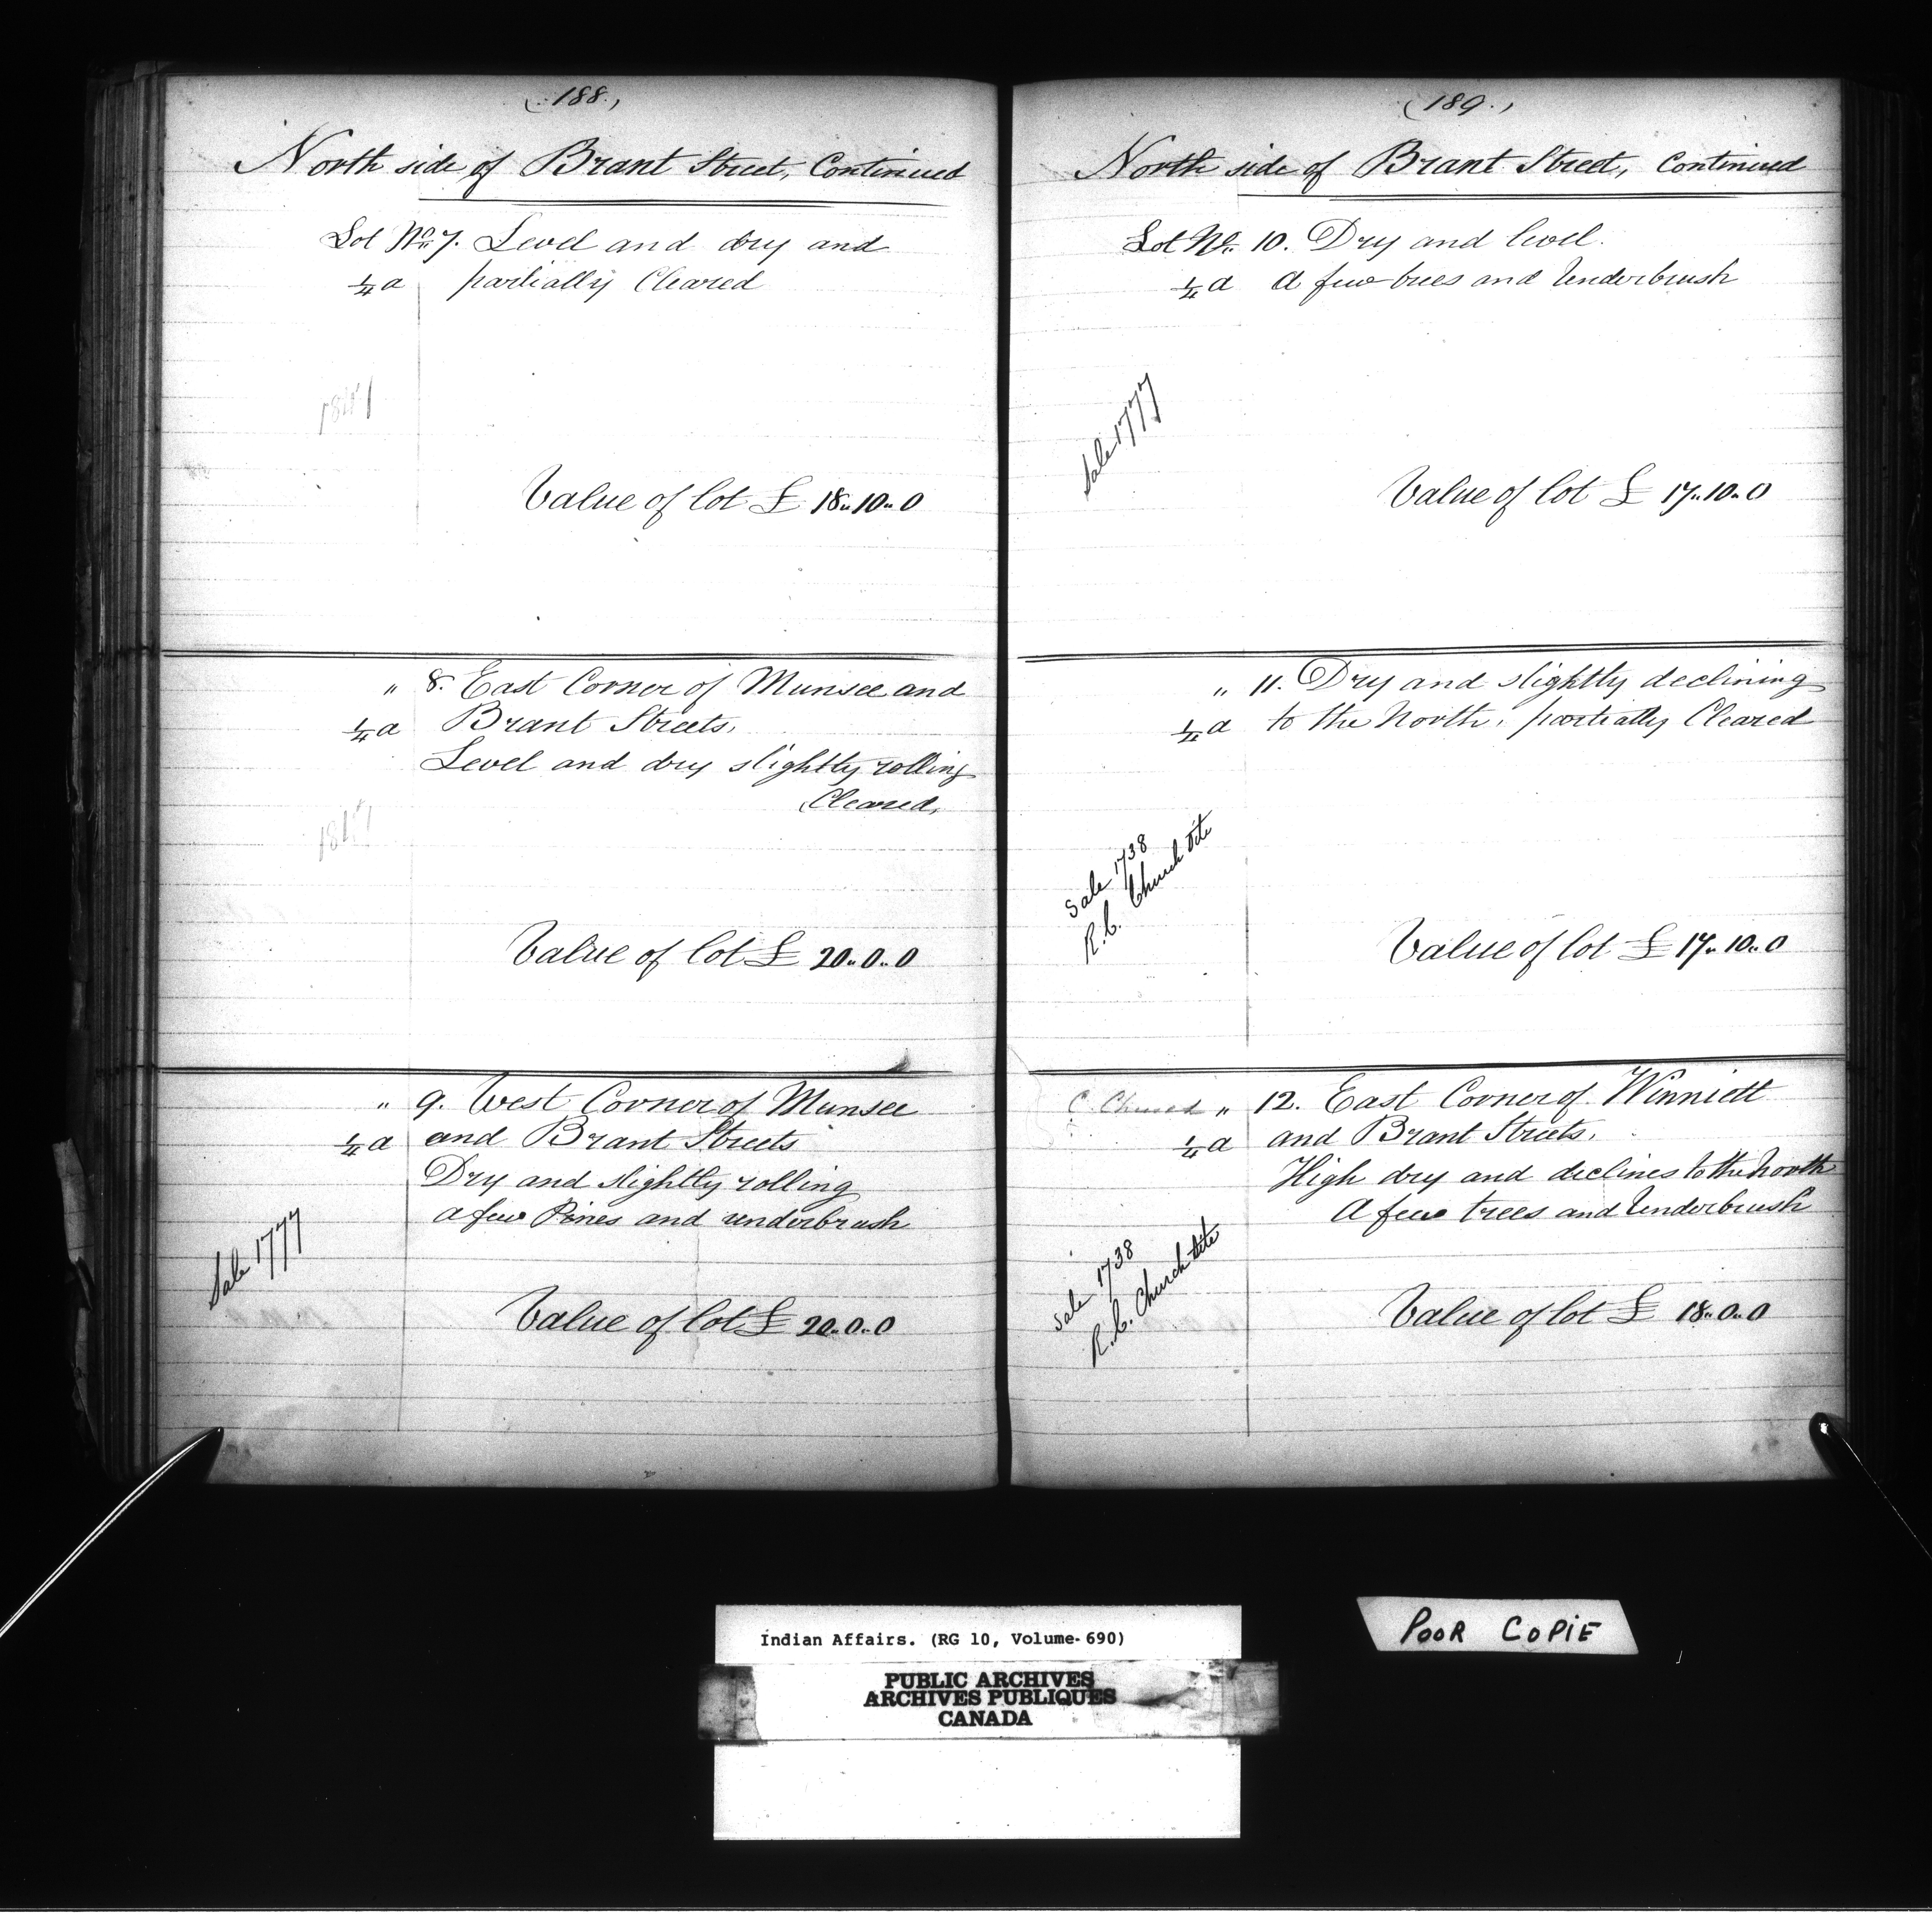 (188.)
North side of Brant Street, Continued
Lot No. 7. Level and dry and
1/4 a partially Cleared
Value of lot £ 18.. 10.. 0
" 8. East Corner of Munsee and
1/4 a Brant Streets.
Level and dry slightly rolling
Cleared.
Value of lot £ 20.. 0.. 0
" 9. West Corner of Munsee
1/4 a and Brant Streets
Dry and slightly rolling
a few Pines and underbrush
Sale 1777
Value of lot £ 20.. 0.. 0
(189.)
North side of Brant Street, Continued
Lot No. 10. Dry and level.
1/4 a A few trees and Underbrush
Sale 1777
Value of lot £ 17.. 10.. 0
" 11. Dry and slightly declining
1/4 a to the North, partially Cleared
Sale 1738
R.C. Church Site
Value of lot £ 17.. 10.. 0
C. Church " 12. East Corner of Winniett
1/4 a and Brant Streets.
High dry and declines to the North
A few trees and Underbrush
Sale 1738
R.C. Church Site
Value of lot £ 18.. 0.. 0
Indian Affairs. (RG 10, Volume 690)
PUBLIC ARCHIVES
ARCHIVES PUBLIQUES
CANADA
POOR COPIE